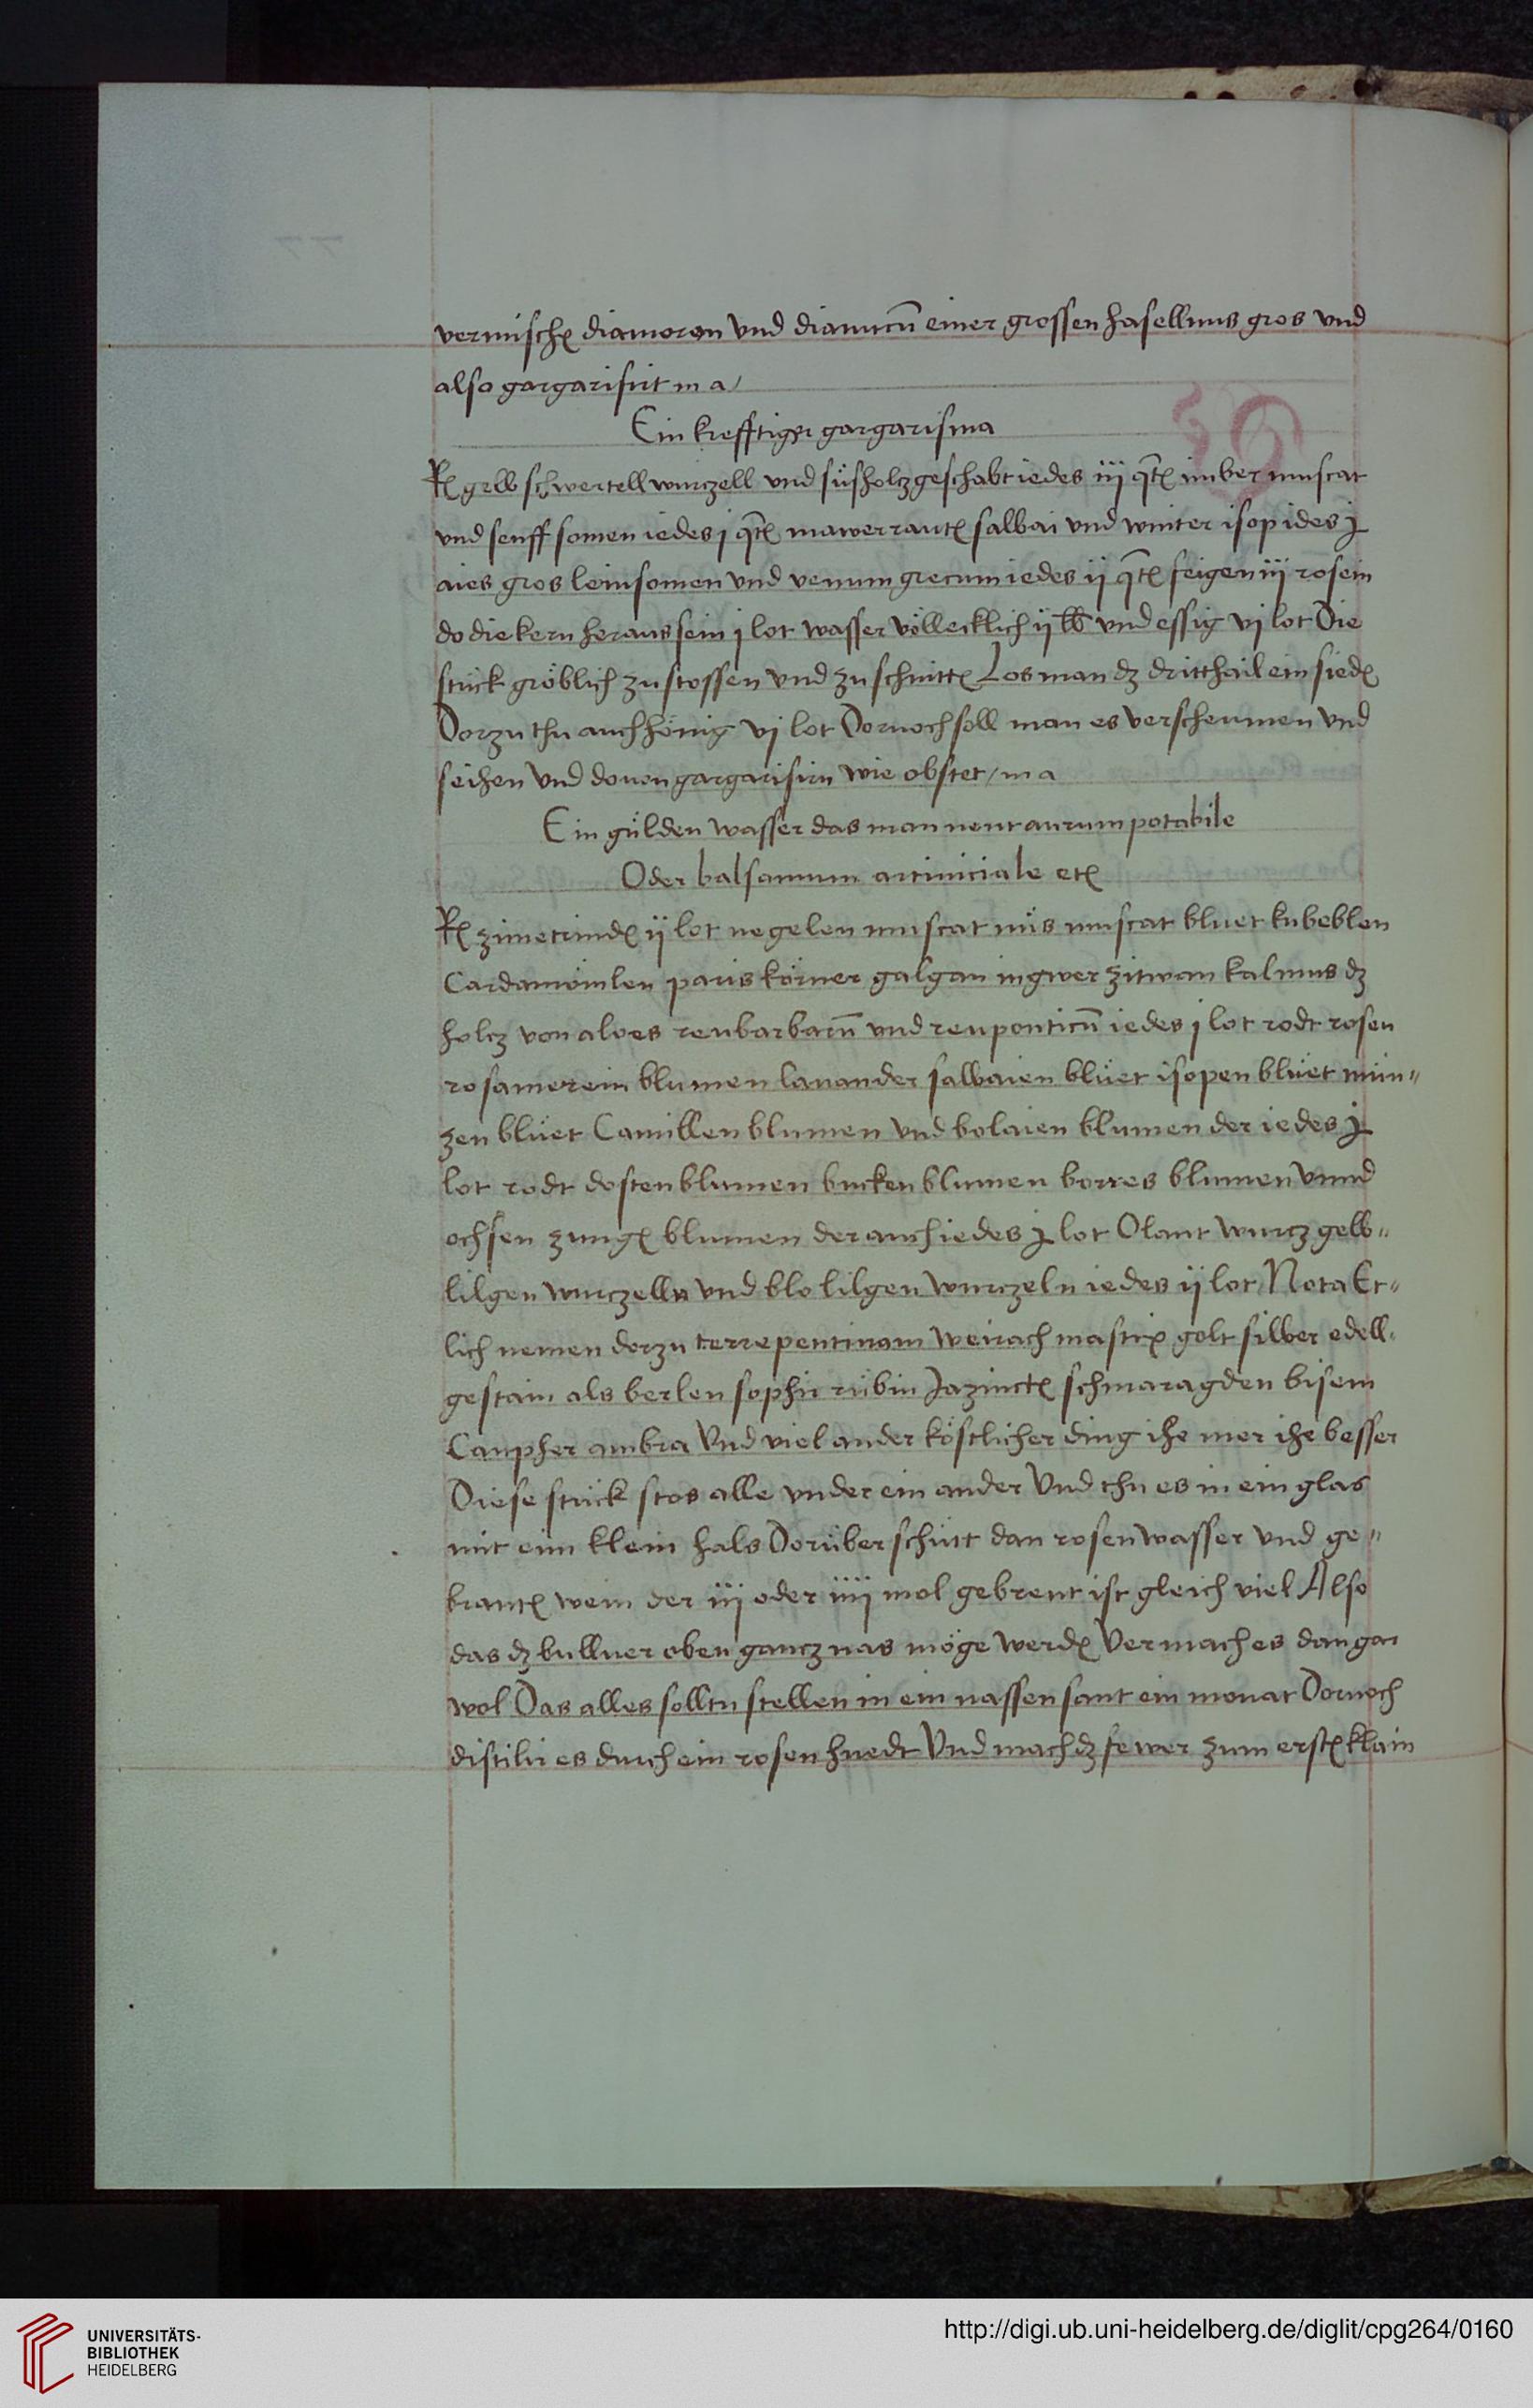 vermisch diamoron vnd dianucũ einer grossen hasellnus gros vnd
also gargarisirt m a /
Ein krefftiger gargarisma
Rx gelb schwertell wurczell vnd süsholcz geschabt iedes iij qt imber muscat
vnd senff somen iedes j qt mawerraut salbai vnd winter isop ides j
aies gros leinsomen vnd venum grecum iedes ij qt feigen iij rosein
do die kern heraus sein j lot wasser völlecklich ij lb vnd essig vj lot Die
stück gröblich zu stossen vnd zu schnitt Los man dz dritthail ein sied
Dorzu thu auch hönig vj lot Dornoch soll man es verscheumen vnd
seihen vnd donon gargarisirn wie obstet / m a
Ein gülden wasser das man nent aurum potabile
Oder balsamum artiniciale etc
Rx zimetrind ij lot negelen muscat nüs muscat bluet kubeblen
Cardamömlen paris körner galgan ingwer zitwan kalmus dz
holcz von aloes reubarbarũ vnd reuponticũ iedes j lot rodt rosen
rosamerein blumen lauander salbaien blüet isopen blüet mün"
zen blüet Camillen blumen vnd bolaien blumen der iedes j
lot rodt dosten blumen bucken blumen borres blumen vnnd
ochsen zung blumen der auch iedes j lot Olant wurcz gelb"
lilgen wurczelln vnd blo lilgen wurczeln iedes ij lot Nota Et"
lich nemen dorzu terrepentinam weirach mastix golt silber edell"
gestain als berlen sophir rübin Jazinct schmaragden bisem
Campher ambra Vnd viel ander köstlicher ding ihe mer ihe besser
Diese stück stos alle vnder ein ander Vnd thu es in ein glas
mit eim klein hals Dorüber schütt dan rosen wasser vnd ge"
brant wein der iij oder iiij mol gebrent ist gleich viel Also
das dz bulluer oben gancz nas möge werd Vermach es dan gar
wol Das alles solltu stellen in ein nassen sant ein monat Dornoch
distilir es durch ein rosen huedt Vnd mach dz fewer zum erst klain
UNIVERSITÄTS-
BIBLIOTHEK
HEIDELBERG
http://digi.ub.uni-heidelberg.de/diglit/cpg264/0160